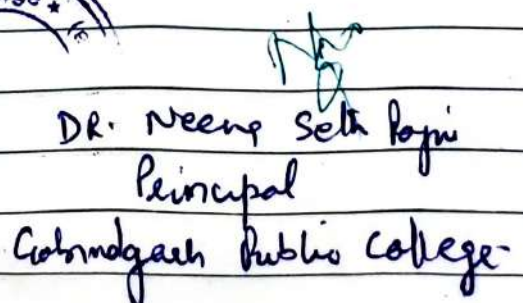 DR. Neena Seth Pajni
Principal
Gobindgarh Public College